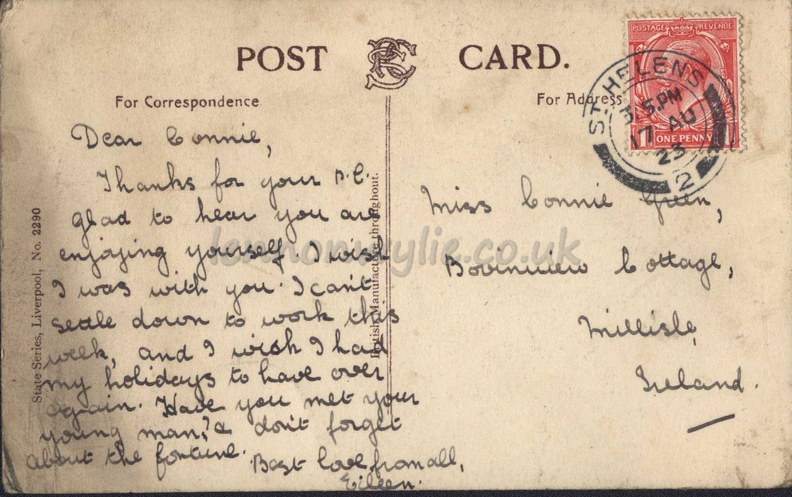 POST CARD.
For Correspondence
For Address
POSTAGE REVENUE
ONE PENNY
ST. HELENS
3.15 PM
17 AU
23
2
Dear Connie,
Thanks for your P.C.
glad to hear you are
enjoying yourself. I wish
I was with you. I can't
settle down to work this
week, and I wish I had
my holidays to have over
again. Have you met your
young man, & don't forget
about the fortune.
Best love from all,
Eileen.
Miss Connie Green,
Cottage,
Millisle,
Ireland.
State Series, Liverpool, No. 2290
British Manufacture throughout.
lennonwylie.co.uk